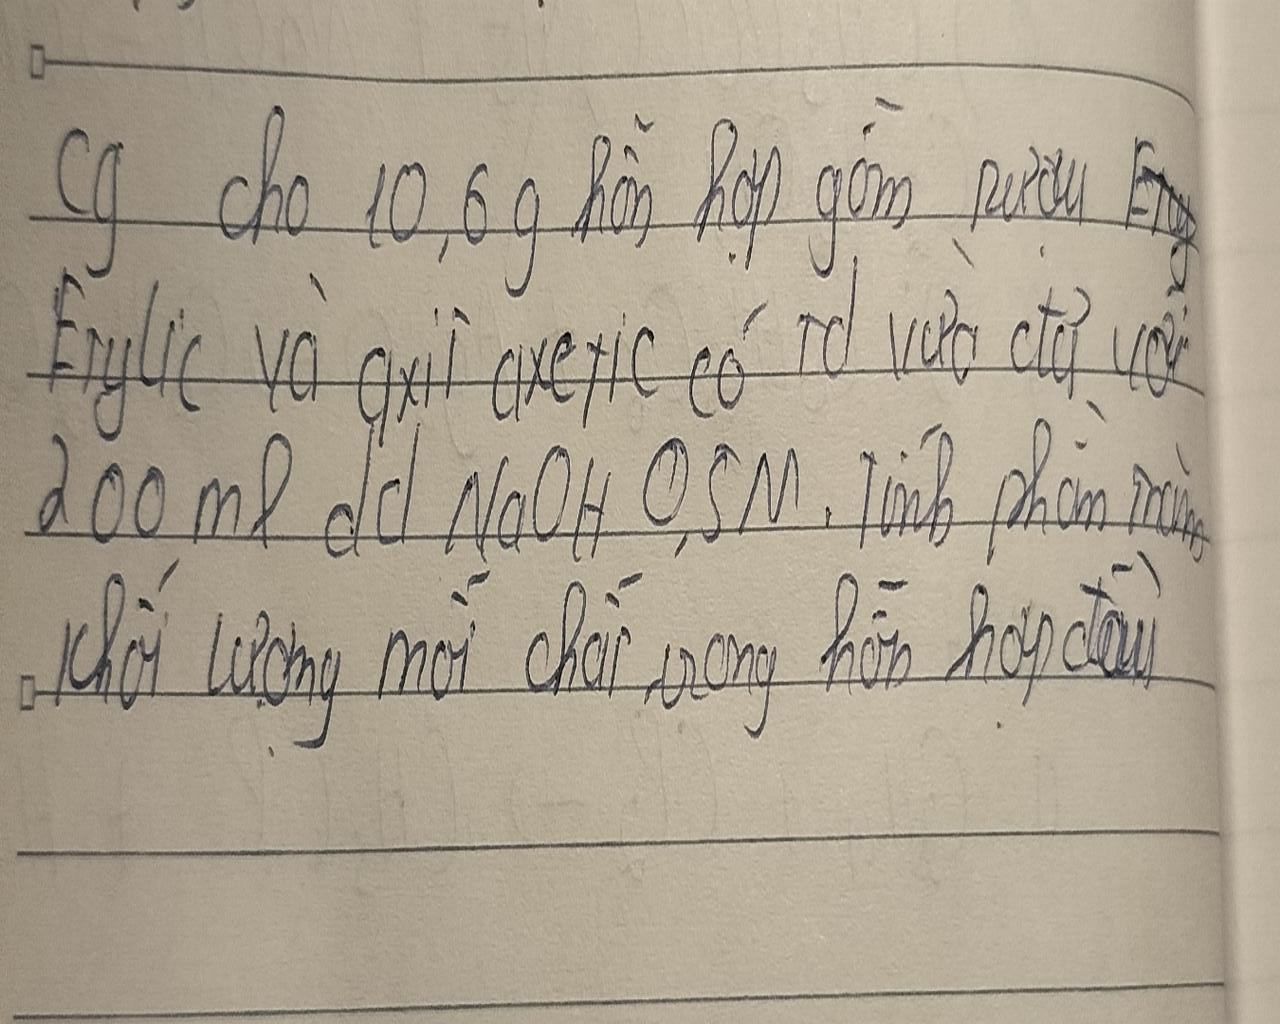 Cg cho 10,6g hỗn hợp gồm rượu
Etylic và axit axetic có Td vừa đủ với
200 ml dd NaOH 0,5M. Tính phần trăm
khối lượng mỗi chất trong hỗn hợp đầu